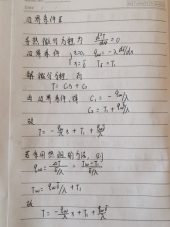 边界条件Ⅱ
导热微分方程为 d²T/dx² = 0
边界条件 { x=0, q_w = -λ dT/dx
x=δ T=T₁
解微分方程, 有
T = C₁x + C₂
由边界条件, 得 C₁ = -q_w/λ
C₂ = T₁ + q_w/λ δ
故
T = -q_w/λ x + T₁ + q_wδ/λ
若采用热阻的方法, 则
q_w = ΔT/(δ/λ) = (T_w-T₁)/(δ/λ)
T_w = q_wδ/λ + T₁
故
T = -q_w/λ x + T₁ + q_wδ/λ